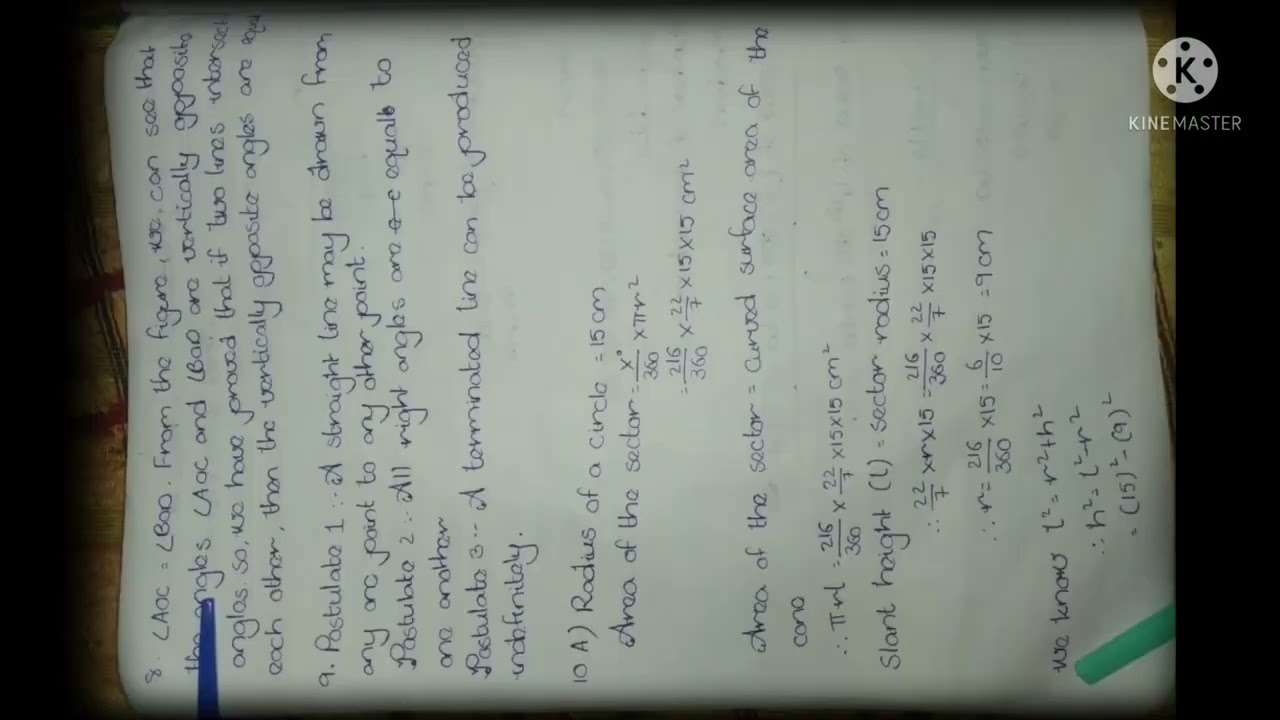 8. ∠AOC = ∠BOD. From the figure, we, can see that
the angles ∠AOC and ∠BOD are vertically opposite
angles. So, we have proved that if two lines intersect
each other, then the vertically opposite angles are equal
9. Postulate 1 :- A straight line may be drawn from
any one point to any other point.
Postulate 2 :- All right angles are equal to
one another
Postulate 3 :- A terminated line can be produced
indefinitely.
10 A) Radius of a circle = 15cm
Area of the sector = x°/360 × πr²
= 216/360 × 22/7 × 15 × 15 cm²
Area of the sector = Curved surface area of the
cone
∴ πrl = 216/360 × 22/7 × 15 × 15 cm²
Slant height (l) = sector radius = 15cm
∴ 22/7 × r × 15 = 216/360 × 22/7 × 15 × 15
∴ r = 216/360 × 15 = 6/10 × 15 = 9cm
we know l² = r² + h²
∴ h² = l² - r²
= (15)² - (9)²
KINEMASTER